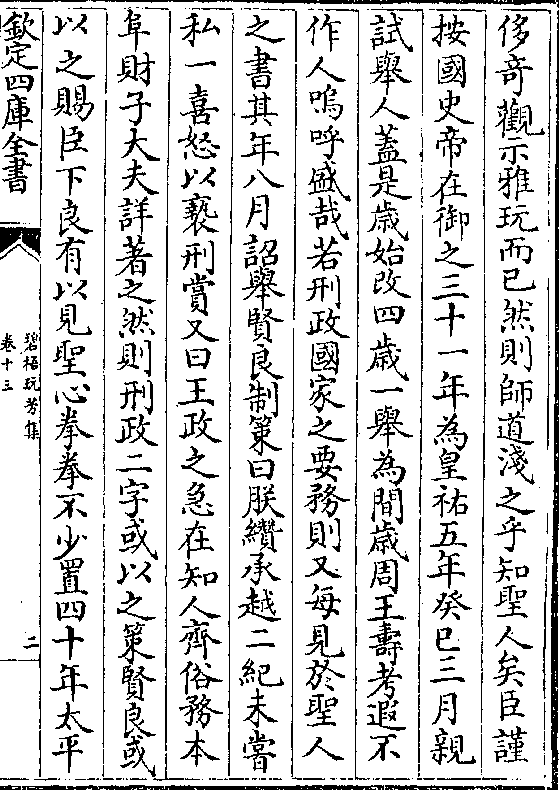 侈奇觀示雅玩而已然則師道淺之乎知聖人矣臣謹
按國史帝在御之三十一年為皇祐五年癸巳三月親
試舉人蓋是歲始改四歲一舉為間歲周王壽考遐不
作人嗚呼盛哉若刑政國家之要務則又每見於聖人
之書其年八月詔舉賢良制策曰朕纘承越二紀未嘗
私一喜怒以褻刑賞又曰王政之急在知人齊俗務本
阜財子大夫詳著之然則刑政二字或以之策賢良或
以之賜臣下良有以見聖心拳拳不少置四十年太平
欽定四庫全書
碧梧玩芳集
卷十三
二